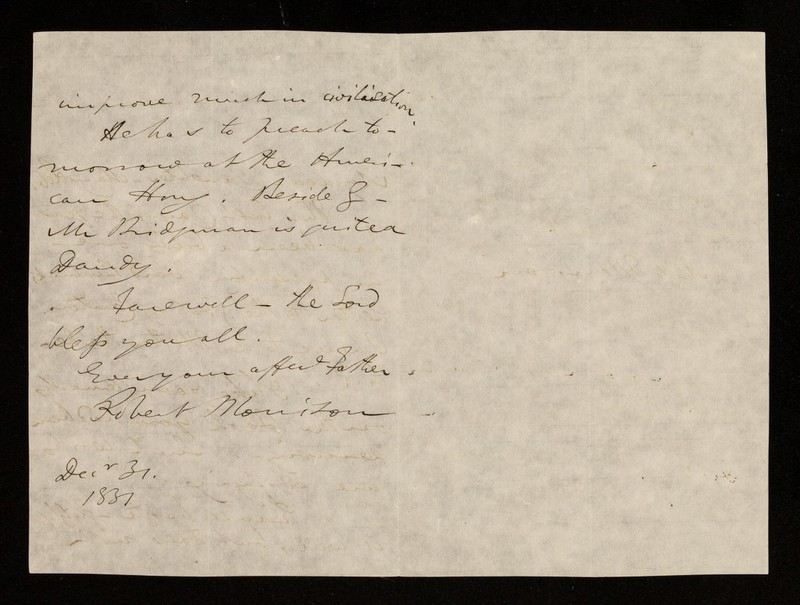 improve much in civilisation.
He has to preach to-
morrow at the Ameri-
can Hong. Beside G -
Mr Bridgman is quite a
Dandy.
Farewell - the Lord
bless you all.
Ever your affect Father
Robert Morrison
Decr 31.
1831